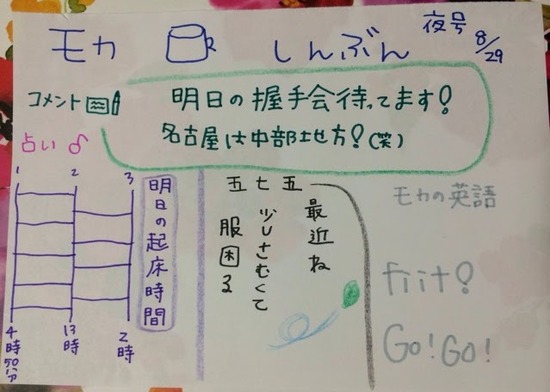 モカ しんぶん 夜号 8/29
コメント
明日の握手会待ってます!
名古屋は中部地方!(笑)
占い♂
1 2 3
4時50分 13時 2時
明日の起床時間
最近ね
少しさむくて
服困る
五
七
五
モカの英語
fiit!
Go!Go!